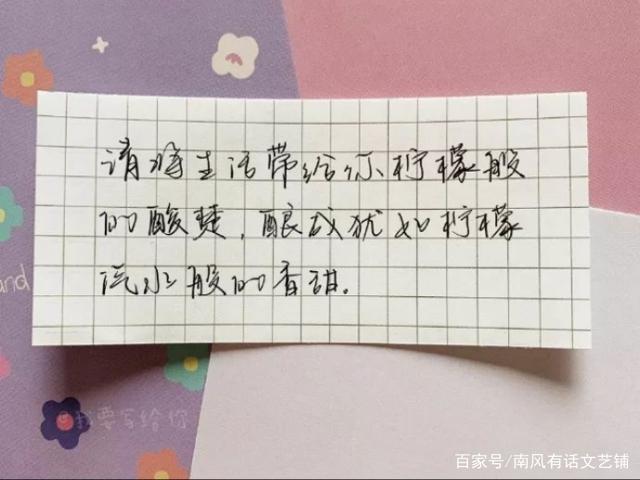 请将生活带给你柠檬般
的酸楚，酿成犹如柠檬
汽水般的香甜.
and
@我要写给你
百家号/南风有话文艺铺